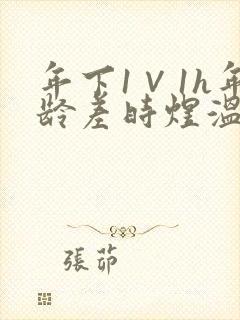 年下1V1h年
龄差時煌溫
張茆